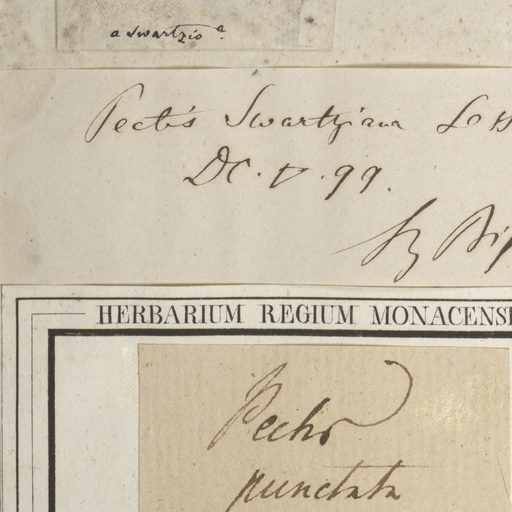 a Swartzio
Pectis Swartziana Lss
DC. V. 99.
Sz Bip
HERBARIUM REGIUM MONACENS
Pectis
punctata